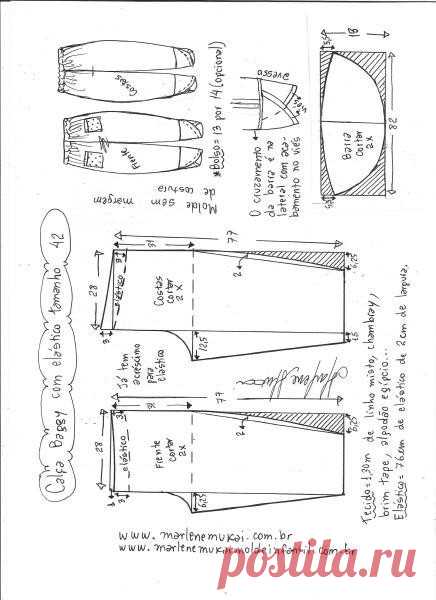 Calça Baggy com elástico tamanho 42
costas
Frente
* Bolso = 13 por 14 (opcional)
Molde sem margem
de costura
avesso
viés
O cruzamento
da barra é na
lateral com aca-
bamento no viés
18
5,5
82
Barra
cortar
2x
5,5
77
28
3
3
elástico
Costas
cortar
2x
2
6,25
12,5
1,5
Já tem
acréscimo
para
elástico
Marlene Mukai
77
28
3
3
elástico
Frente
cortar
2x
2
6,25
6,25
Tecido = 1,30m de linho misto, chambray,
brim tape, algodão egípcio...
Elástico = 76cm de elástico de 2cm de largura.
www.marlenemukai.com.br
www.marlenemukaimoldeinfantil.com.br
postila.ru